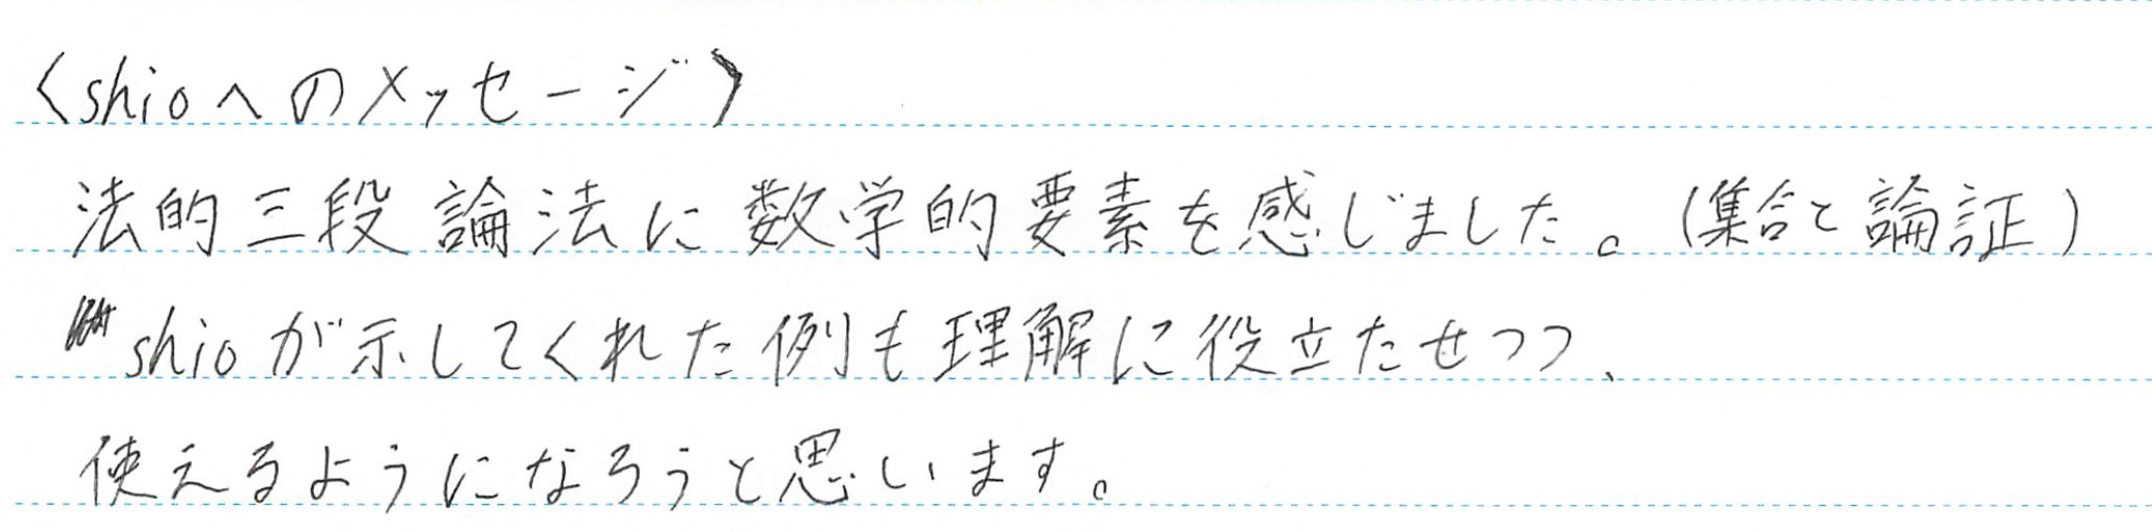 〈shioへのメッセージ〉
法的三段論法に数学的要素を感じました。(集合と論証)
shioが示してくれた例も理解に役立たせつつ、
使えるようになろうと思います。